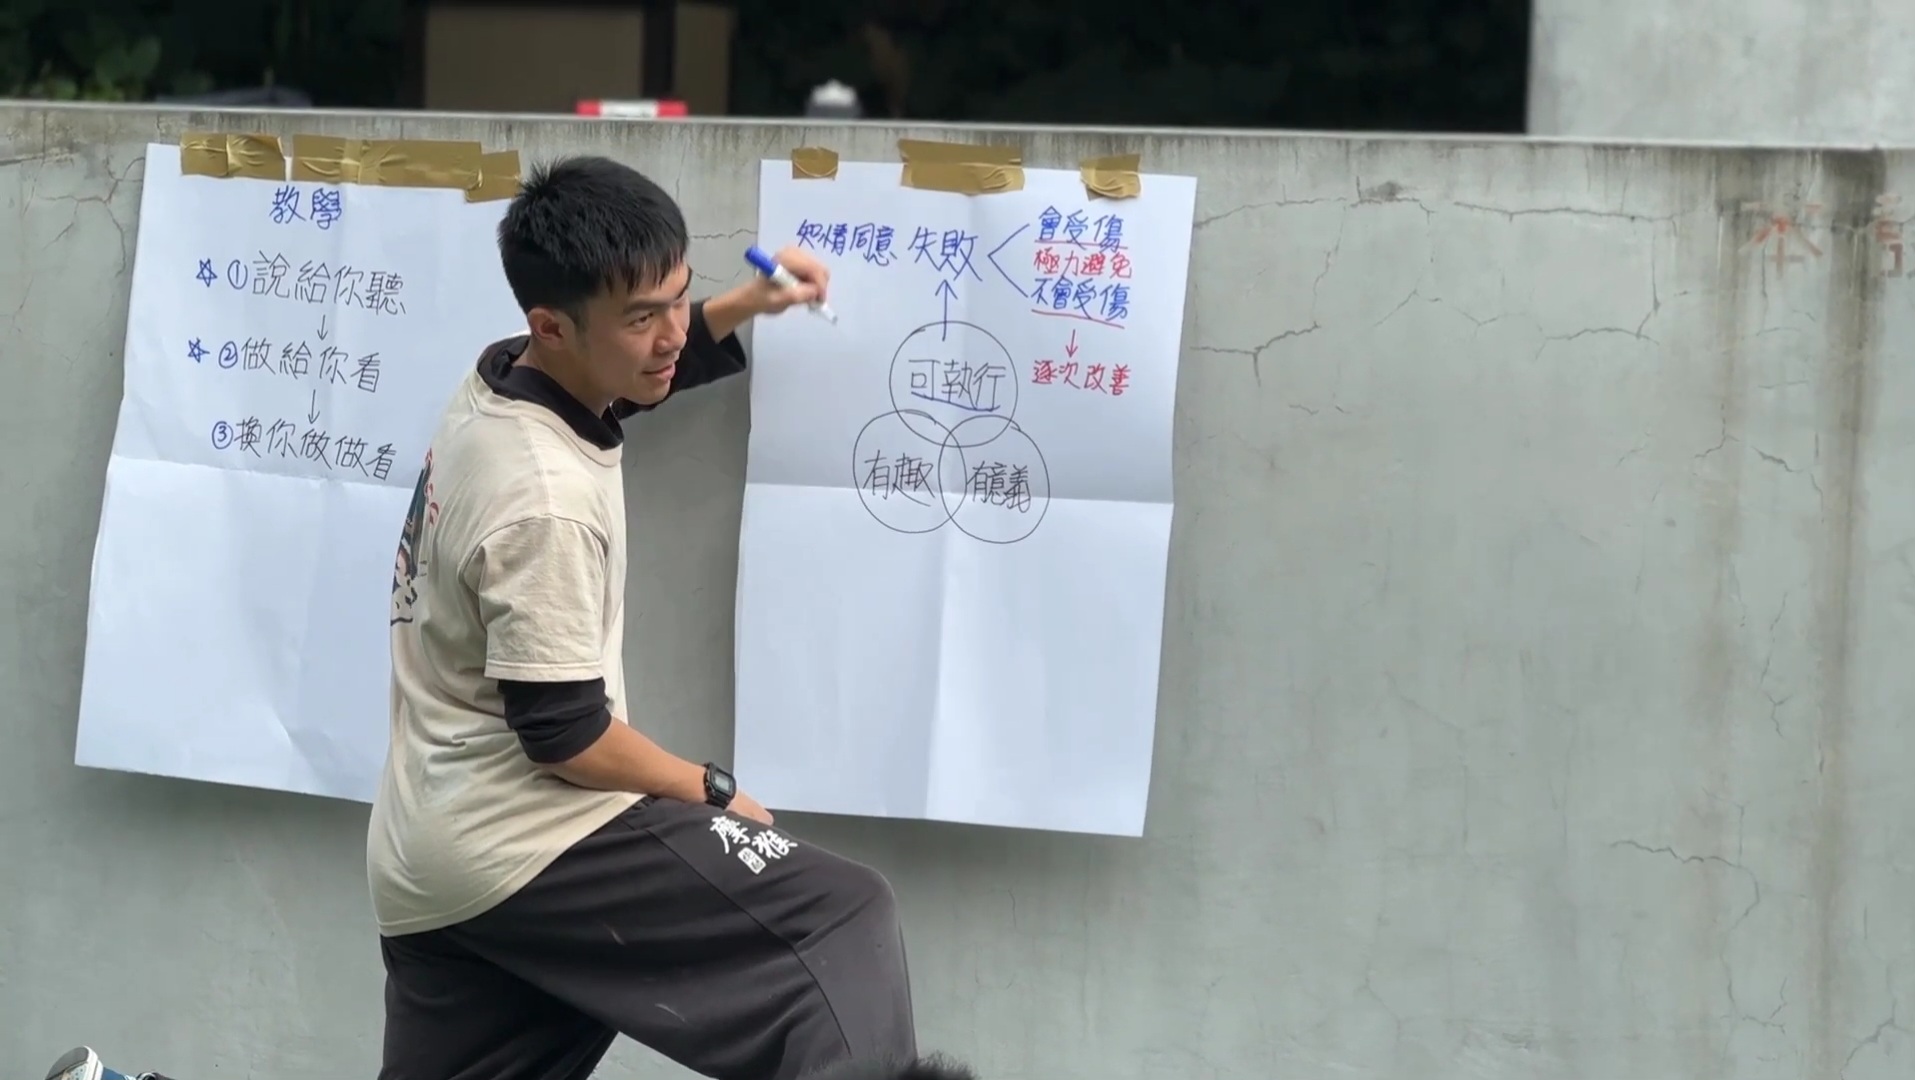 教學
☆①說給你聽
↓
☆②做給你看
↓
③換你做做看
知情同意 失敗
會受傷
極力避免
不會受傷
↓
逐次改善
↑
可執行
有趣
有意義
摩猴
本